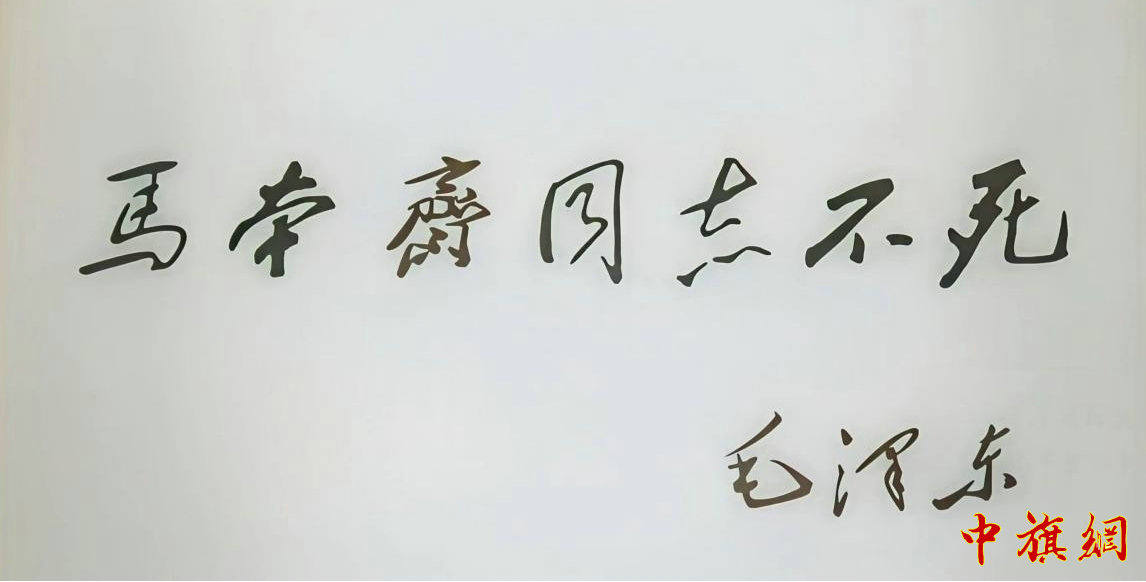 馬本齋同志不死
毛澤东
中旗網